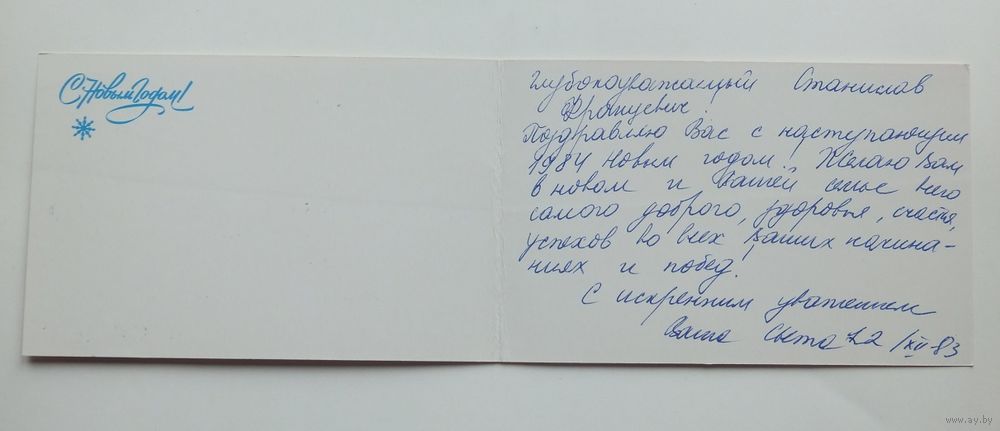 С Новым Годом!
Глубокоуважаемый Станислав
Францевич!
Поздравляю Вас с наступающим
1984 Новым годом! Желаю Вам
в новом и Вашей семье всего
самого доброго, здоровья, счастья,
успехов во всех Ваших начина-
ниях и побед!
С искренним уважением
Ваша Света 22/XII-83
www.ay.by